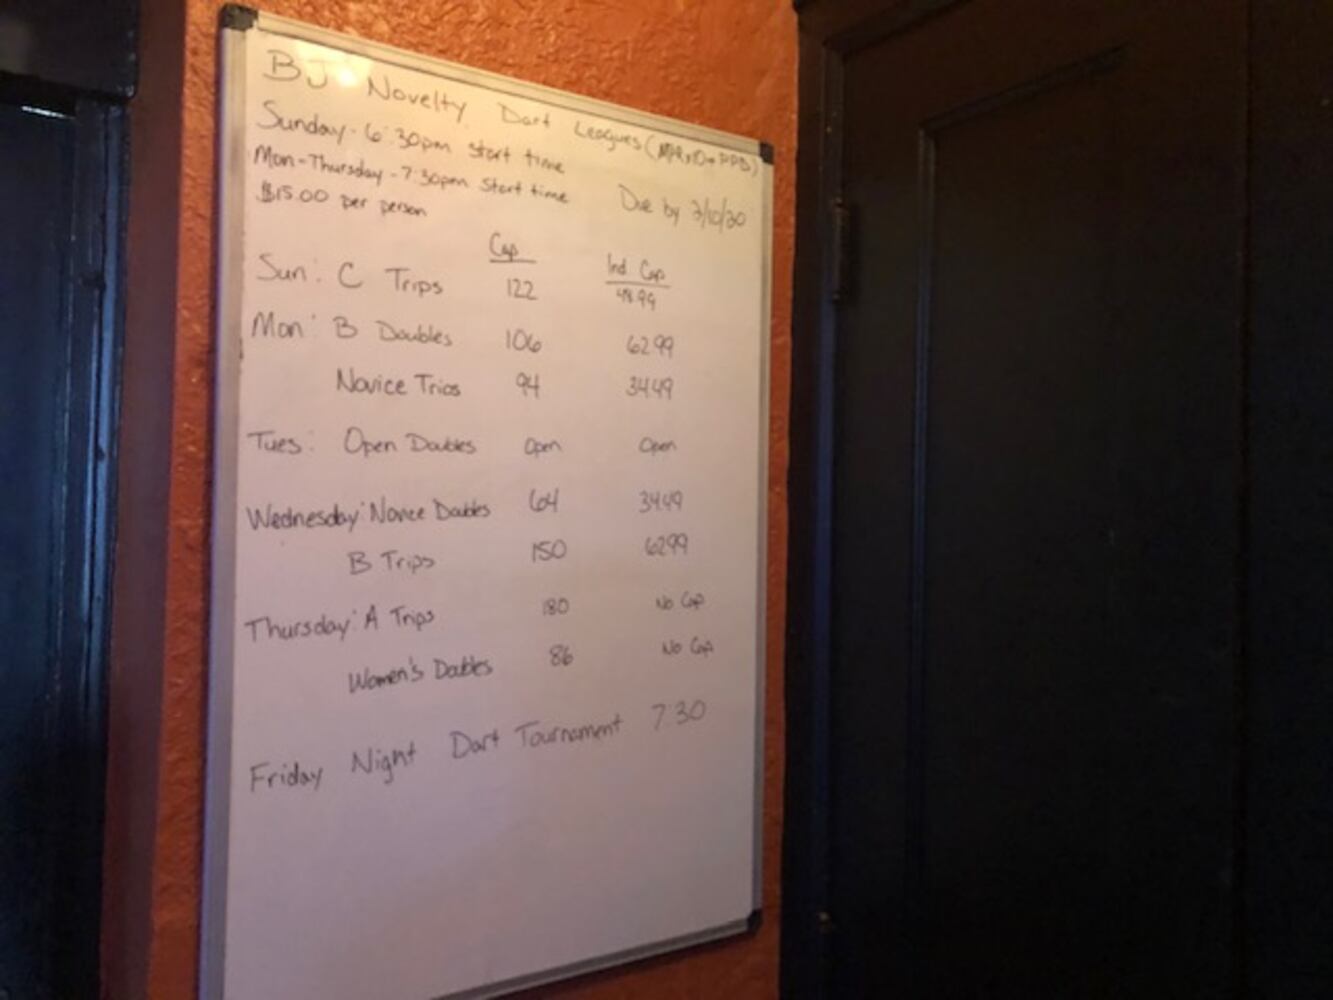 BJ Novelty Dart Leagues (MPRx10+PPD)
Sunday - 6:30pm start time
Mon-Thursday - 7:30pm start time
$15.00 per person Due by
Cap Ind. Cap
Sun: C Trips 122 48.99
Mon: B Doubles 106 62.99
Novice Trios 94 34.49
Tues: Open Doubles Open Open
Wednesday: Novice Doubles 64 34.49
B Trips 150 62.99
Thursday: A Trips 180 No Cap
Women's Doubles 86 No Cap
Friday Night Dart Tournament 7:30